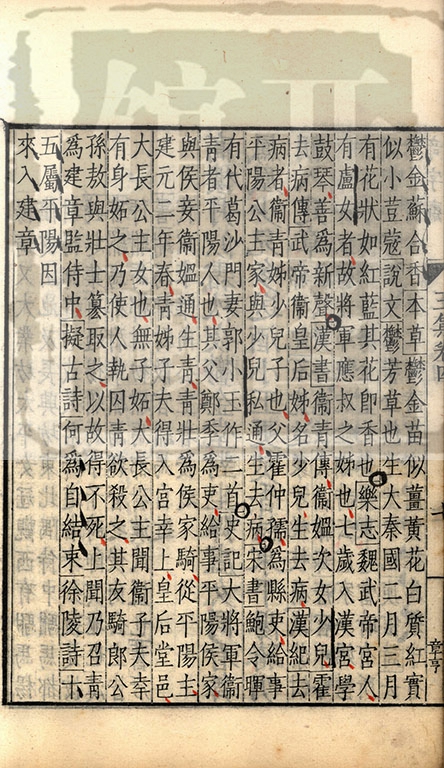 鬱金蘇合香本草鬱金苗似薑黃花白質紅實
似小荳蔻說文鬱芳草也生大秦國二月三月
有花狀如紅藍其花即香也樂志魏武帝宮人
有盧女者故將軍應叔之姊也七歲入漢宮學
鼓琴善為新聲漢書衞青傳衞媼次女少兒霍
去病傳武帝衞皇后姊名少兒生去病漢紀去
病者衞青姊少兒子也父霍仲孺為縣吏給事
平陽公主家與少兒私通生去病宋書鮑令暉
有代葛沙門妻郭小玉作二首史記大將軍衞
青者平陽人也其父鄭季為吏給事平陽侯家
與侯妾衞媼通生青青壯為侯家騎從平陽主
建元二年春青姊子夫得入宮幸上皇后堂邑
大長公主女也無子妬大長公主聞衞子夫幸
有身妬之乃使人執囚青欲殺之其友騎郎公
孫敖與壯士篡取之以故得不死上聞乃召青
為建章監侍中擬古詩何為自結束徐陵詩十
五屬平陽因
來入建章
章亨